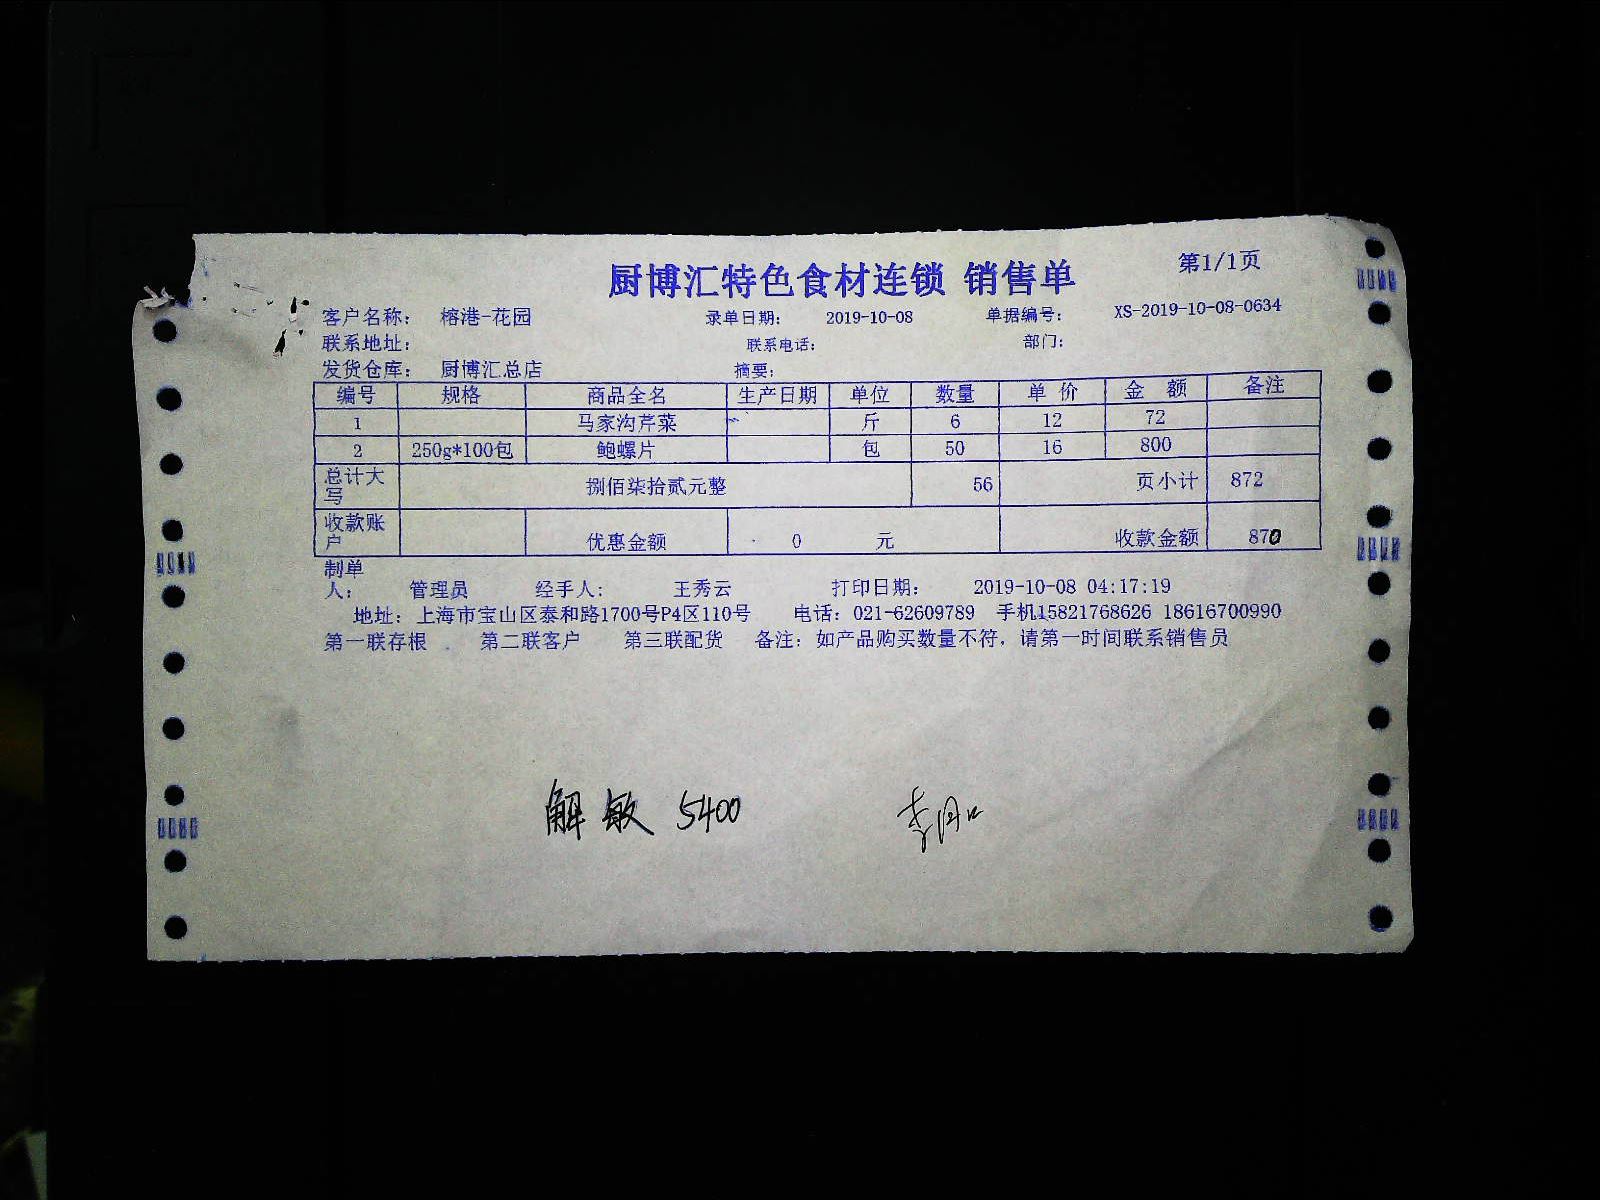 厨博汇特色食材连锁 销售单 第1/1页
客户名称： 榕港-花园 录单日期： 2019-10-08 单据编号： XS-2019-10-08-0634
联系地址： 联系电话： 部门：
发货仓库： 厨博汇总店 摘要：
编号 规格 商品全名 生产日期 单位 数量 单 价 金 额 备注
1 马家沟芹菜 斤 6 12 72
2 250g*100包 鲍螺片 包 50 16 800
总计大写 捌佰柒拾贰元整 56 页小计 872
收款账户 优惠金额 0 元 收款金额 870
制单人： 管理员 经手人： 王秀云 打印日期： 2019-10-08 04:17:19
地址：上海市宝山区泰和路1700号P4区110号 电话：021-62609789 手机15821768626 18616700990
第一联存根 第二联客户 第三联配货 备注：如产品购买数量不符，请第一时间联系销售员
解敏 5400